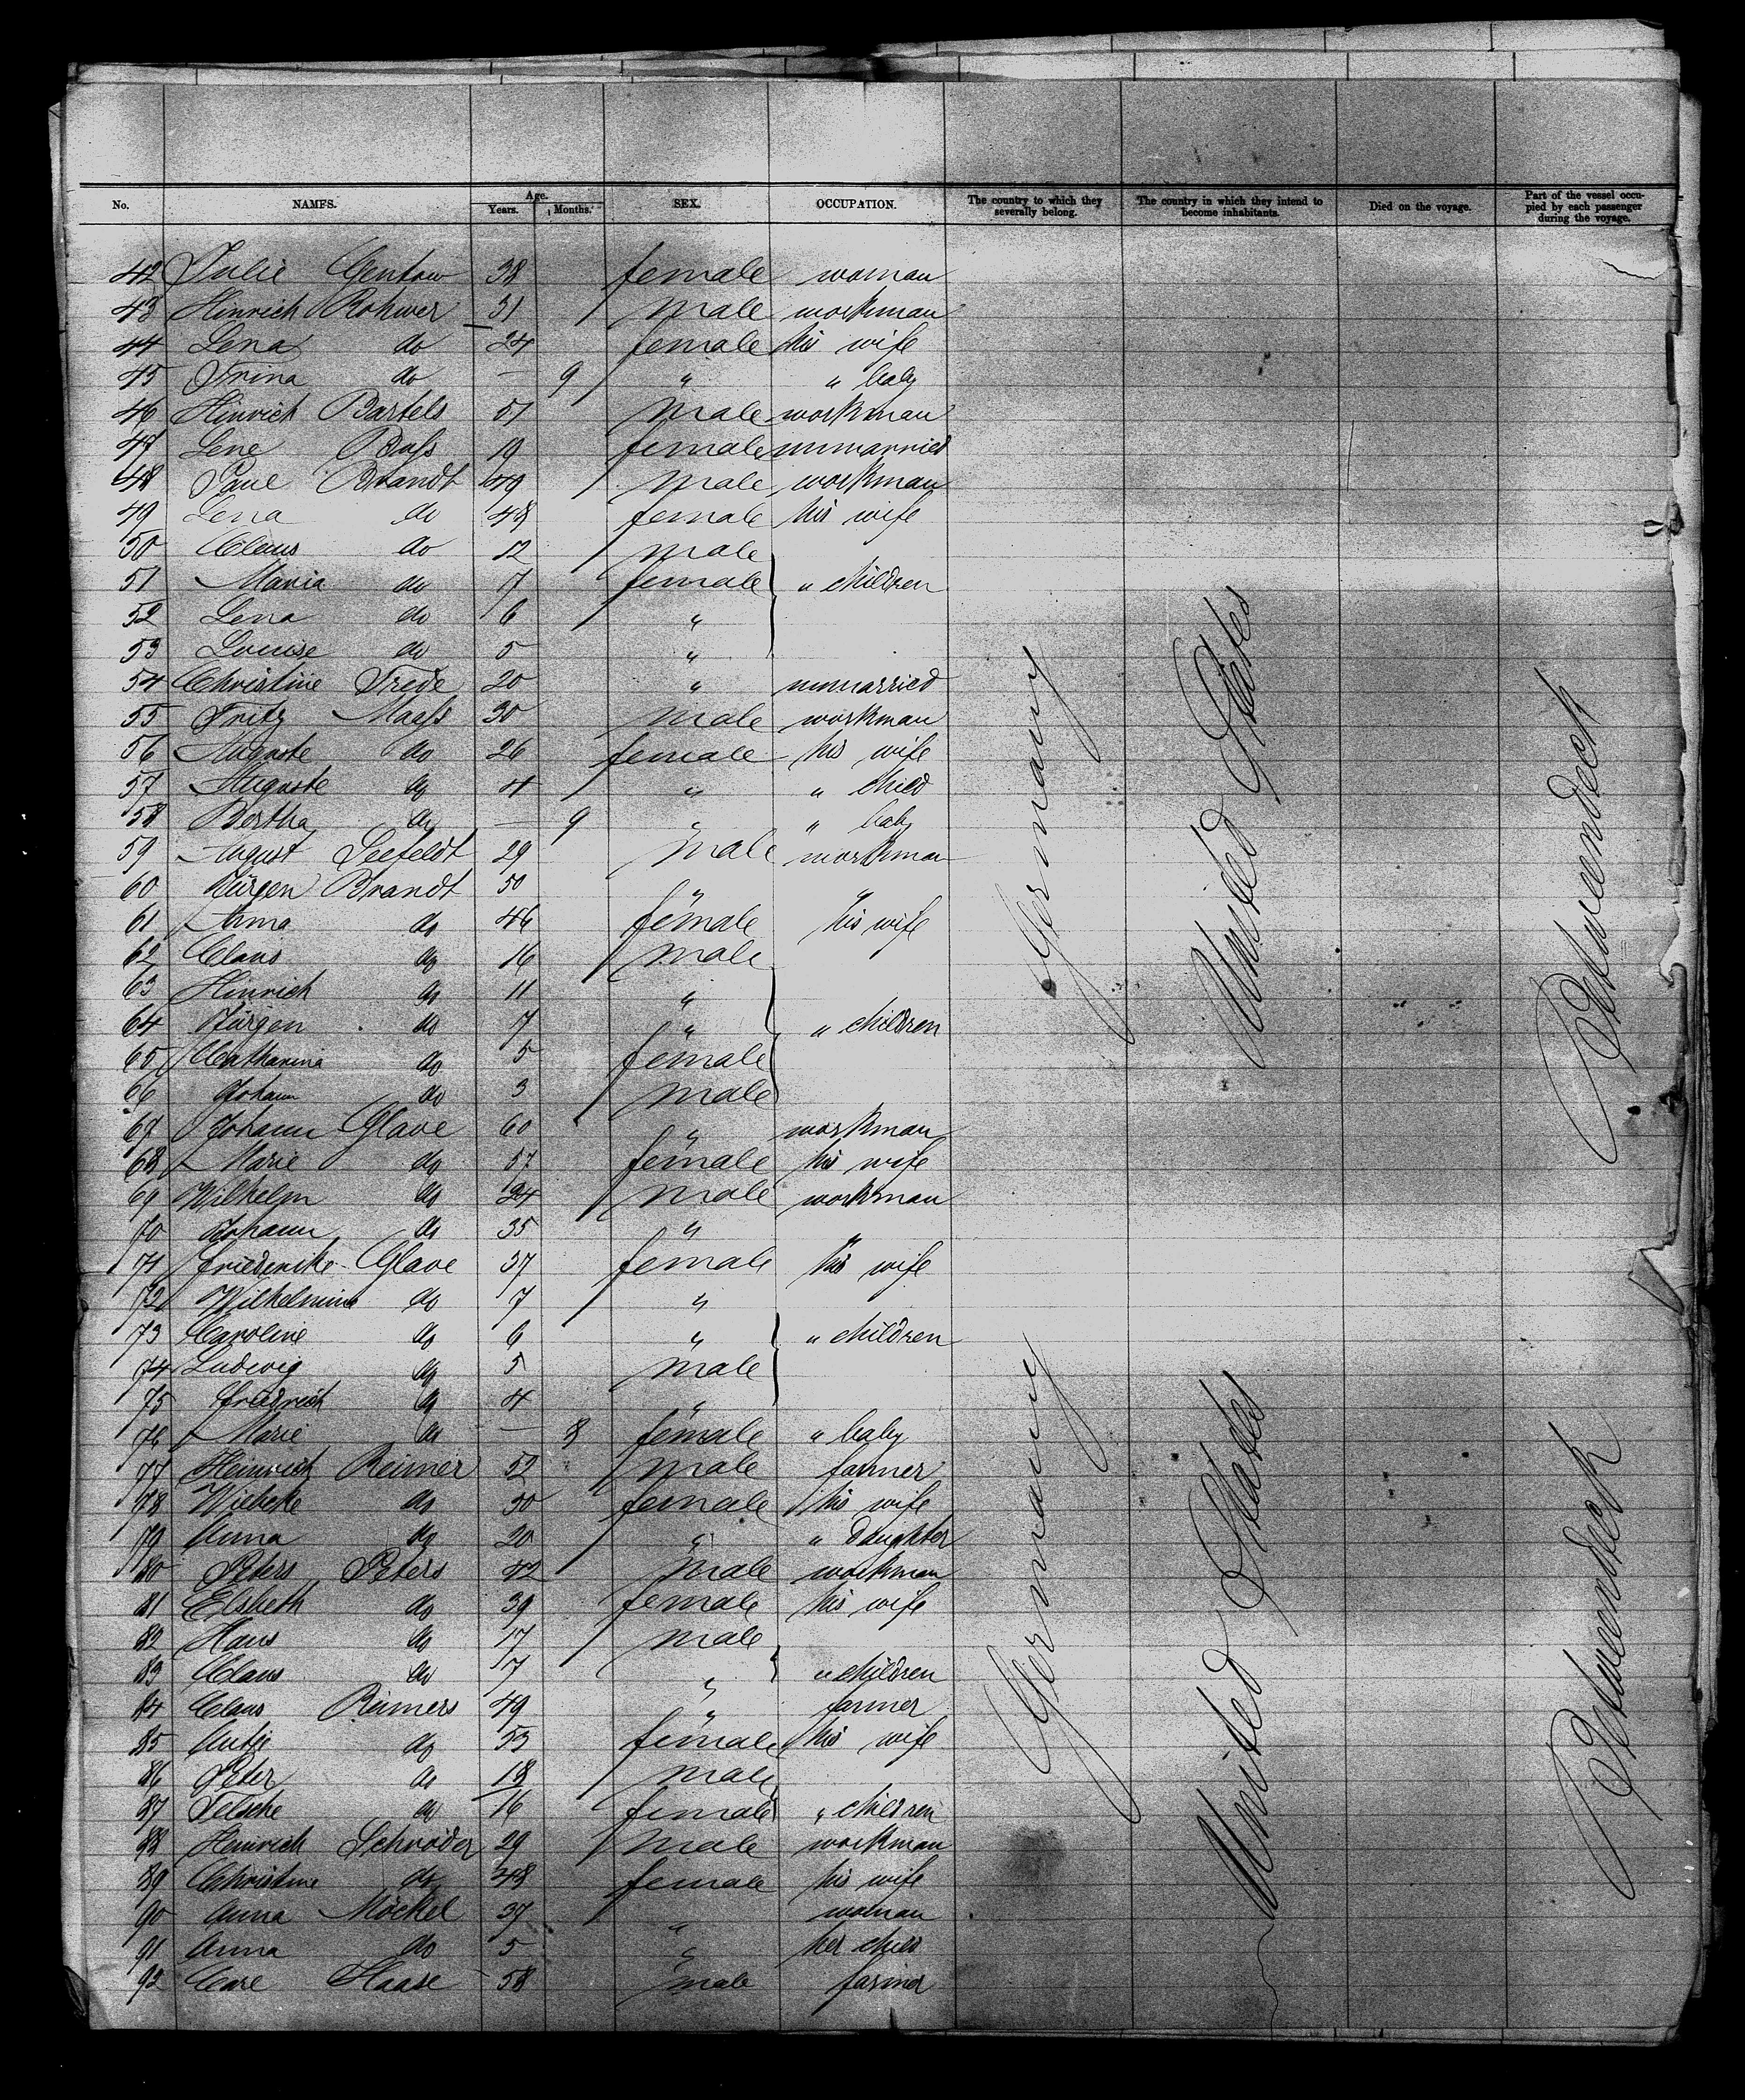 No. NAMES. Age. Years. Months. SEX. OCCUPATION. The country to which they severally belong. The country in which they intend to become inhabitants. Died on the voyage. Part of the vessel occupied by each passenger during the voyage.
42 Julie 38 female woman
43 Hinrich Rohwer 31 male workman
44 Lena do 24 female his wife
45 Trina do — 9 " " baby
46 Hinrich Bartels 57 male workman
47 Lene 19 female unmarried
48 Paul Brandt 49 male workman
49 Lena do 48 female his wife
50 Claus do 12 male
51 Maria do 7 female " children
52 Lena do 6 "
53 Louise do 5 "
54 Christine Trede 20 " unmarried
55 Fritz Maass 30 male workman
56 Auguste do 26 female his wife
57 Auguste do 4 " " child
58 Bertha do — 9 " " baby
59 August Seefeldt 29 male workman
60 Jürgen Brandt 50 " "
61 Anna do 46 female his wife
62 Claus do 16 male
63 Hinrich do 11 "
64 Jürgen do 7 " " children
65 Catharina do 5 female
66 Johann do 3 male
67 Johann Glave 60 " workman
68 Marie do 57 female his wife
69 Wilhelm do 24 male workman
70 Johann do 35 " "
71 Friederike Glave 37 female his wife
72 Wilhelmine do 7 "
73 Caroline do 6 " " children
74 Ludwig do 5 male
75 Friedrich do 4 "
76 Marie do — 8 female " baby
77 Heinrich Reimer 52 male farmer
78 Wiebeke do 50 female his wife
79 Anna do 20 " " Daughter
80 Peters Peters 42 male workman
81 Elsbeth do 39 female his wife
82 Hans do 17 male
83 Claus do 7 " " children
84 Claus Reimers 49 " farmer
85 Antje do 53 female his wife
86 Peter do 18 male
87 Telsche do 16 female " children
88 Heinrich Schröder 29 male workman
89 Christine do 48 female his wife
90 Anna Möckel 37 " woman
91 Anna do 5 " her child
92 Carl Haase 58 male farmer
Germany
United States
Betweendeck
Germany
United States
Betweendeck